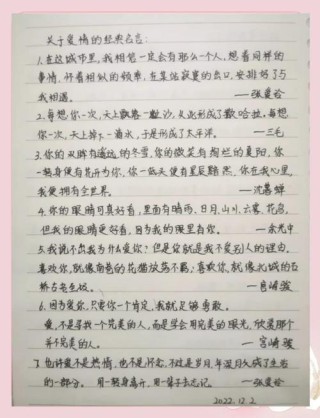 关于爱情的经典名言:
1.在这城市里,我相信一定会有那么一个人,想着同样的
事情,怀着相似的频率,在某站寂寞的出口,安排好了与
我相遇。 —张爱玲
2.每想你一次,天上飘落一粒沙,从此形成了撒哈拉。每想
你一次,天上掉下一滴水,于是形成了太平洋。 —三毛
3.你的双眸有遥远的冬雪,你的微笑有绚烂的夏阳,你
一转身便有花卉为你,你一低头便有星辰黯然,你在我心里,
我便拥有全世界。 —沈嘉蝉
4.你的眼睛可真好看,里面有晴雨、日月、山川、云雾、花鸟,
但我的眼睛更好看,因为我的眼里有你。 —余光中
5.我说不出我为什么爱你?但是你就是我不爱别人的理由。
喜欢你,就像南巷的花猫放荡不羁;喜欢你,就像北城的
—宫崎骏
6.因为爱你,只要你一个肯定,我就足够勇敢。
爱,不是寻找一个完美的人,而是学会用完美的眼光,欣赏那个
并不完美的人。 —宫崎骏
7.也许爱不是热情,也不是怀念,不过是岁月,年深月久成了生活
的一部分。用一转身离开,用一辈子去忘记。 —张爱玲
2022.12.2